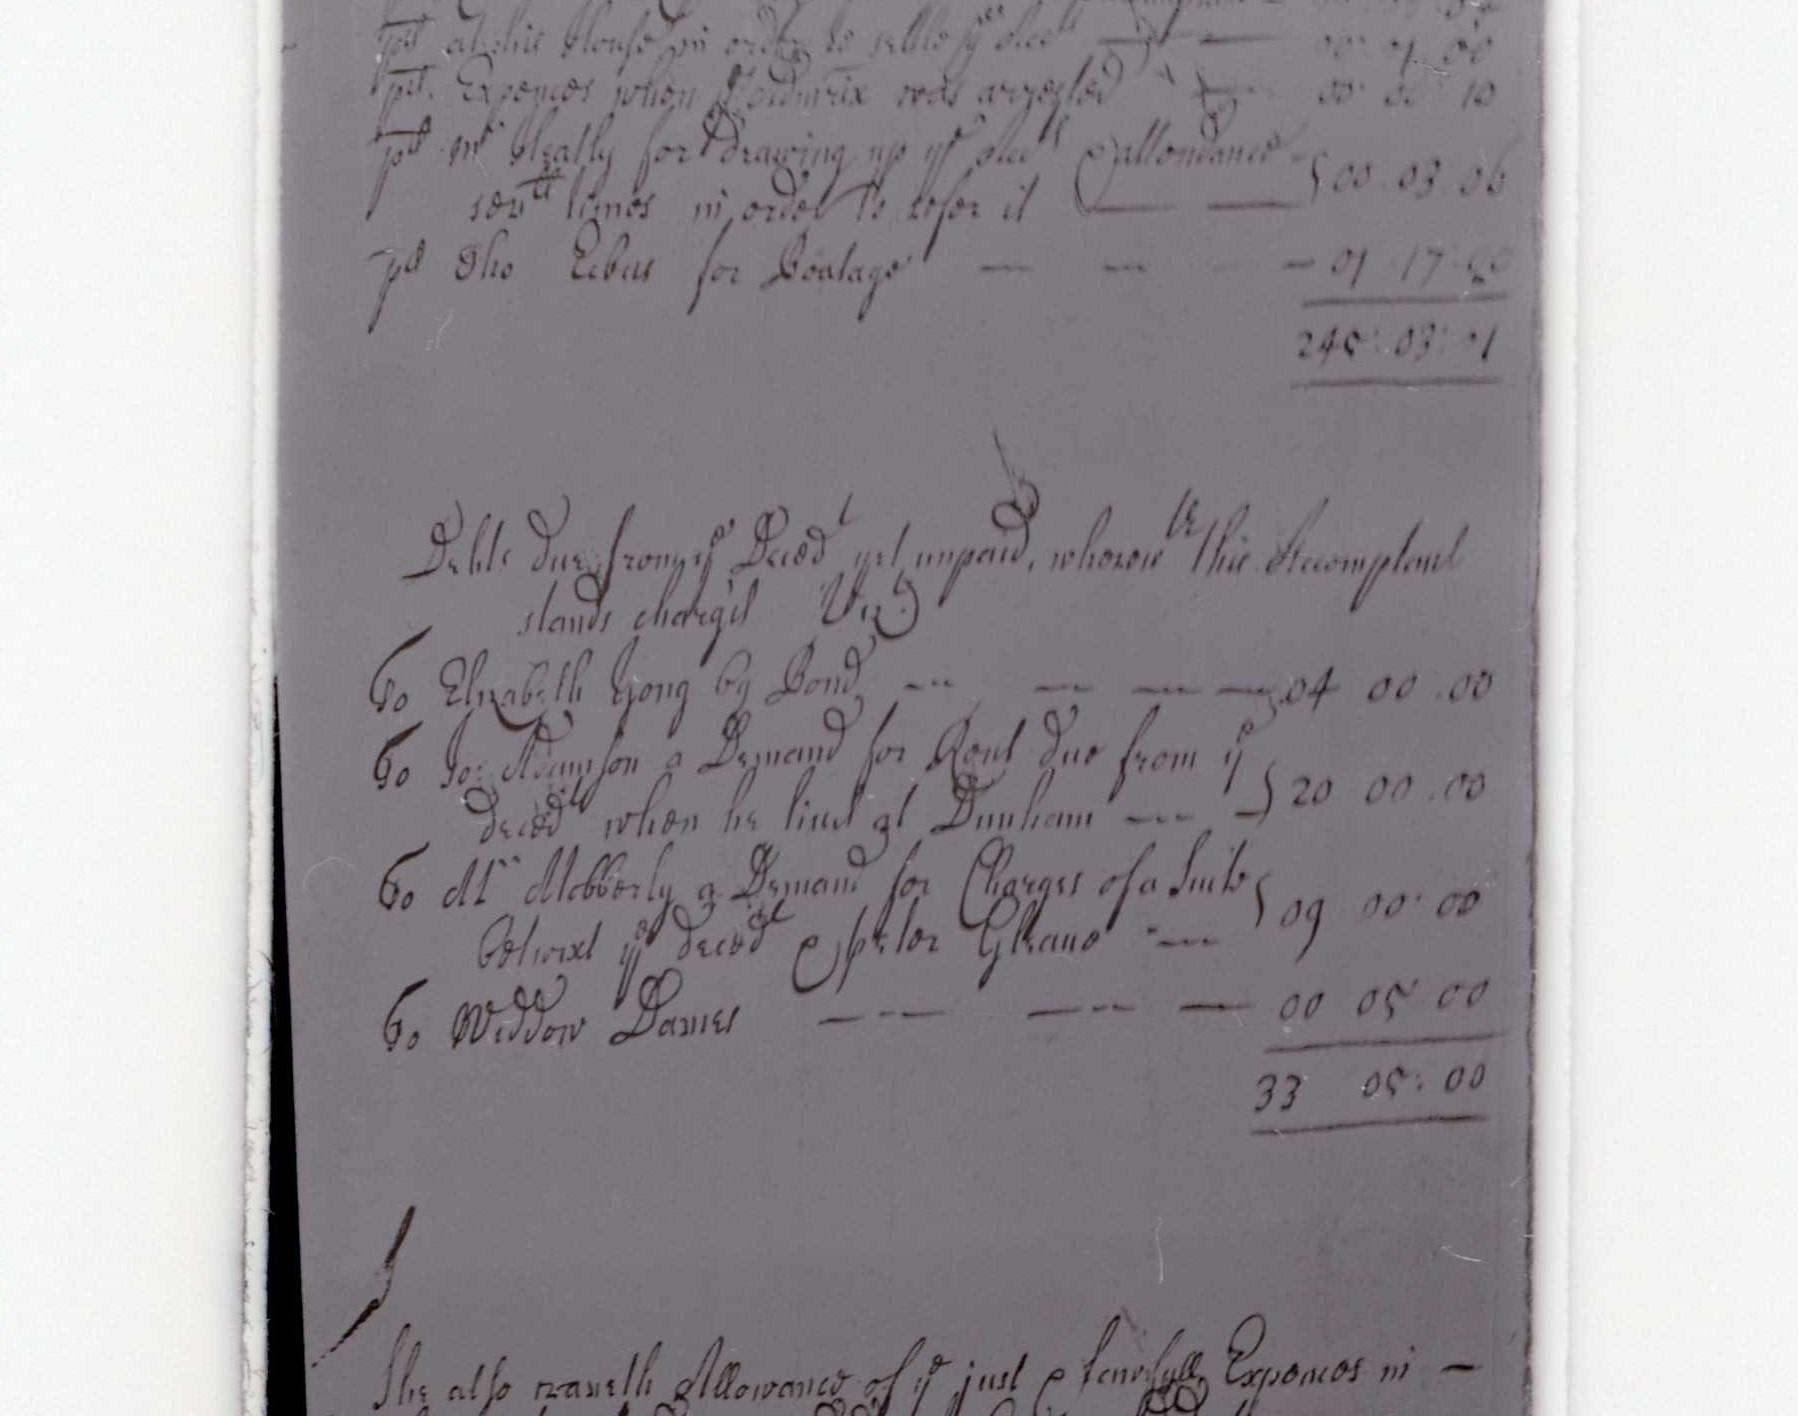 pd at his House in order to settle ye Acctt 00 01 00
pd. Expences when ye Admrix was arrested 00 00 10
pd mr for drawing up ye Acctt & attendance 00 03 06
sevll times in order to refer it
pd Tho for Boatage 01 17 00
245: 03: 01
Debts due from ye Decedt yet unpaid, wherewth this Accomptant
stands charg'd Vizt
To Elizabeth Yong by Bond 04 00 00
To Jo: Adamson a Demand for Rent due from ye
decedt when he lived at Dunham 20 00 00
To Mr Mobberly a Demand for Charges of a Suite
betwixt ye decedt & peter Gleave 09 00 00
To Widdow Davies 00 05 00
33 05: 00
She also craveth Allowance of ye just & lawfull Expences in